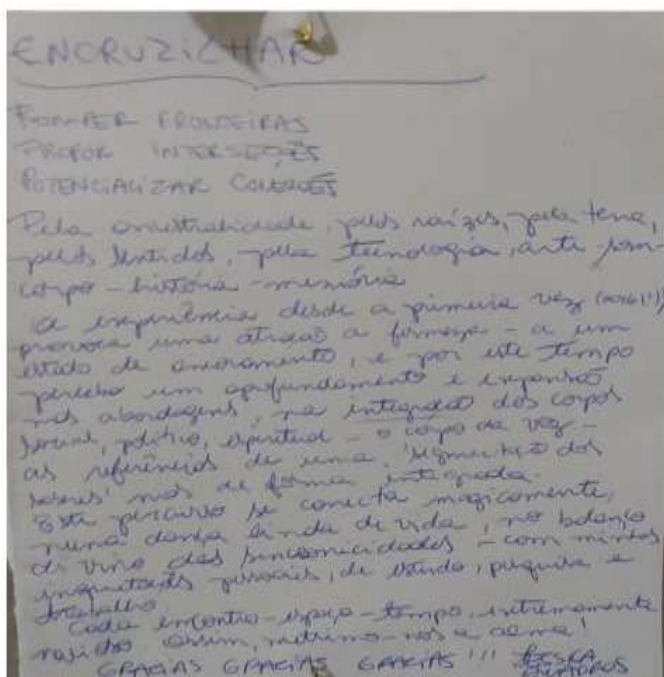 ENCRUZILHAR
ROMPER FRONTEIRAS
PROPOR INTERSEÇÕES
POTENCIALIZAR CONEXÕES
Pela ancestralidade, pelas raízes, pela terra,
pelos sentidos, pela tecnologia, arte - som
corpo - história - memória
A experiência desde a primeira vez (2016!!)
provoca uma atração a
estado de encoramento, e por este tempo
percebo um aprofundamento e expansão
nas abordagens, na integração dos corpos
social, político, espiritual - o corpo da voz -
as referências de uma 'segmentação dos
saberes' mas de forma integrada.
Este percurso se conecta magicamente,
numa dança linda de vida, no balanço
divino das sincronicidades - com minhas
inquietações pessoais, de estudo, pesquisa e
trabalho.
Cada encontro - espaço - tempo, extremamente
assim, nutrimo-nos a alma!
GRACIAS GRACIAS GRACIAS !!!